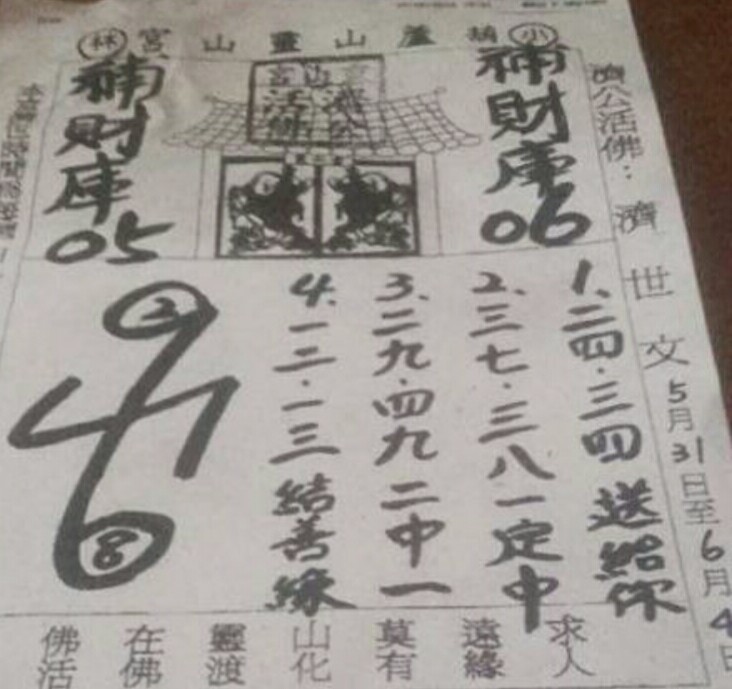 小 葫蘆山靈山宮 林
濟公活佛：濟世文 5月31日至6月4日
補財庫06
補財庫05
1.二四.三四送給你
2.三七.三八一定中
3.二九.四九二中一
4.一二.一三結善緣
2
8
求人
遠緣
莫有
山化
靈渡
在佛
佛活